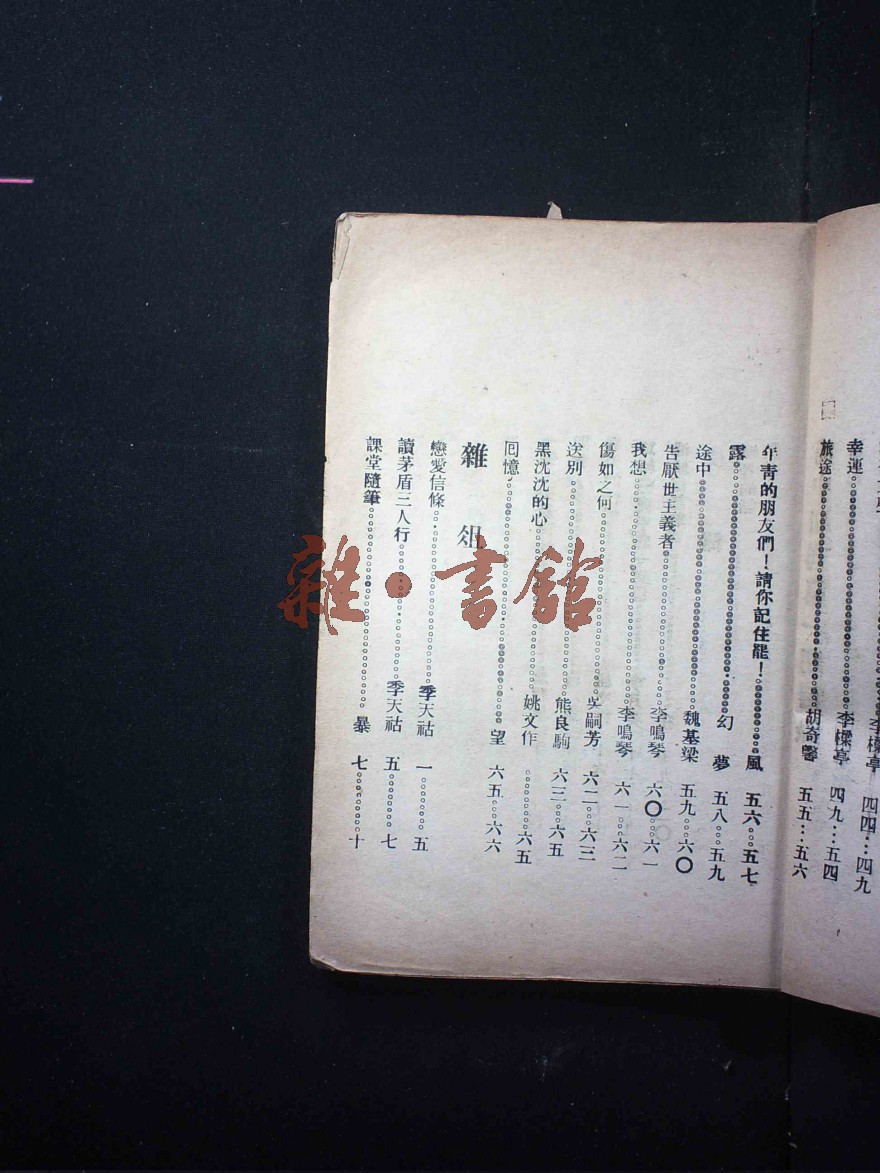 李樑亭 四四：四九
幸運 李樑亭 四九：五四
旅途 胡奇馨 五五：五六
年靑的朋友們！請你記住罷！ 風 五六 五七
露 幻夢 五八 五九
途中 魏基梁 五九 六〇
告厭世主義者 李鳴琴 六〇 六一
我想 李鳴琴 六一 六二
傷如之何 吳嗣芳 六二 六三
送別 熊良駒 六三 六五
黑沈沈的心 姚文作 六五
囘憶 望 六五 六六
雜俎
戀愛信條 季天祜 一 五
讀茅盾三人行 季天祜 五 七
課堂隨筆 暴 七 十
雜·書館